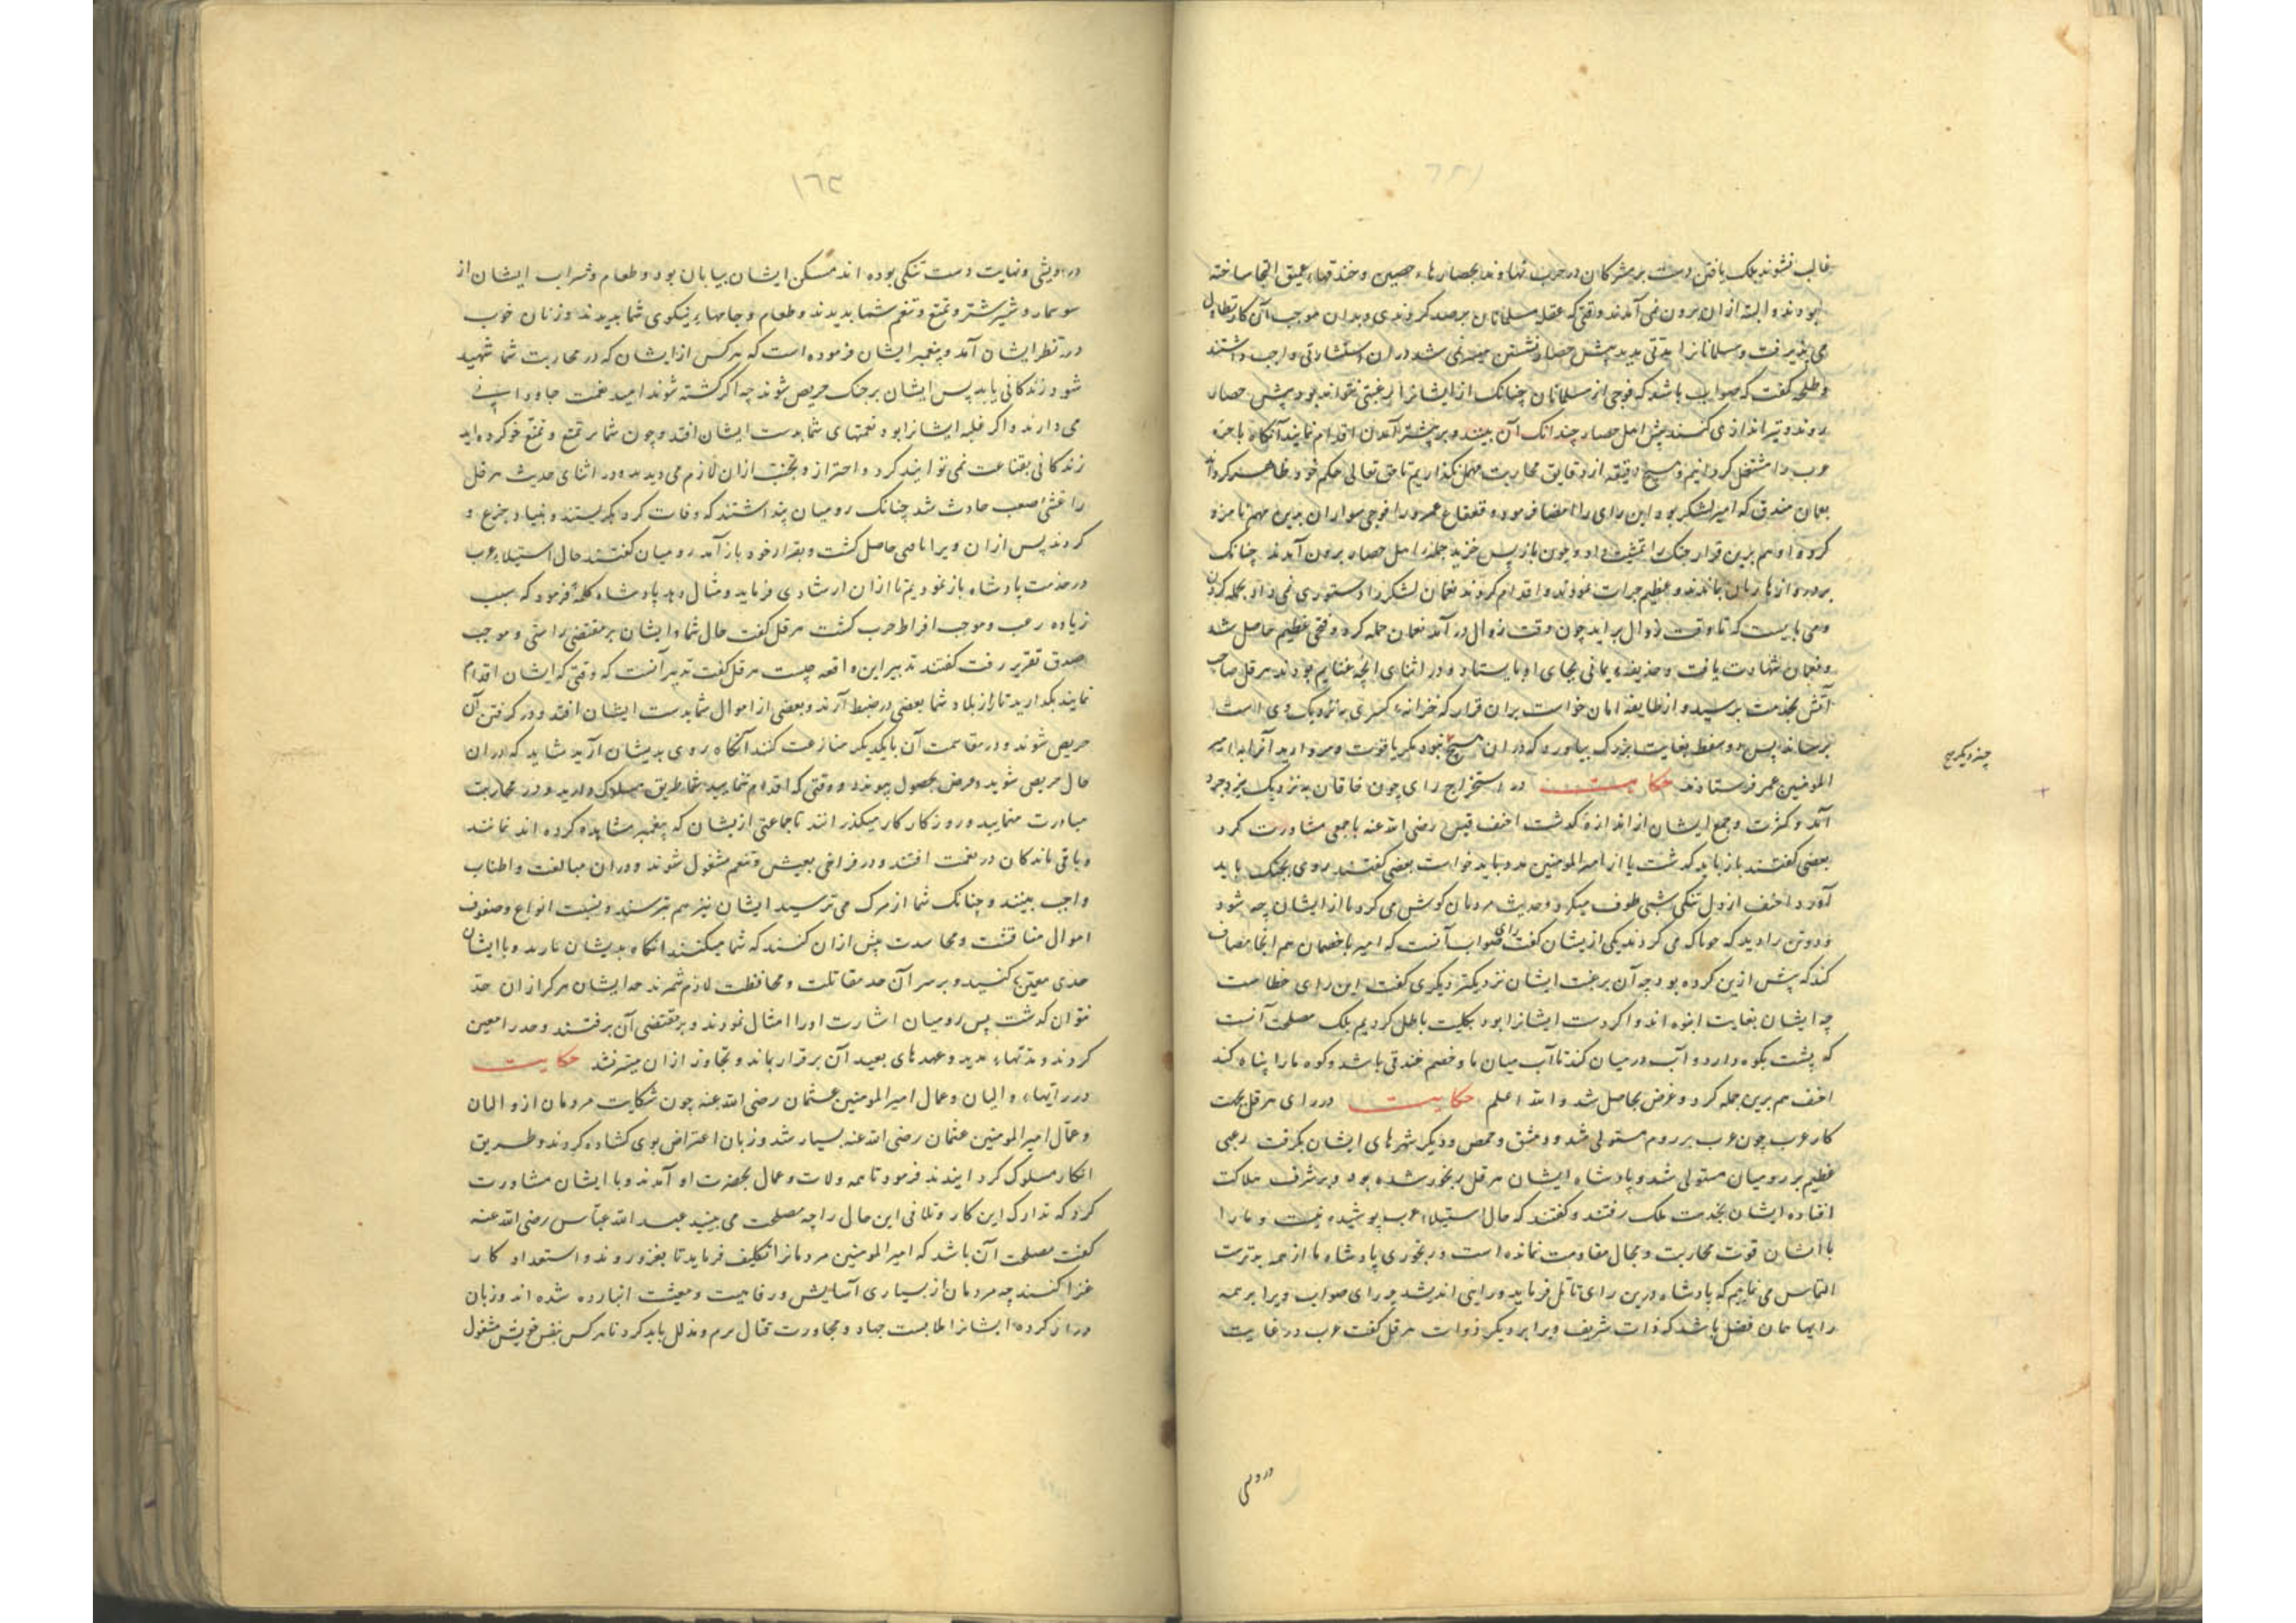 غالب نشوند بلک یافتن دست بر مشرکان در حرب نهاوند بحصارهاء حصین و خندقهاء عمیق التجا ساخته
بودند و البته ازان برون نمی آمدند وقتی که عقلاء مسلمانان برصد کردندی و بدان موجب آن کار تطاول
می پذیرفت و مسلمانانرا مدتی بدید پیش حصار نشستن میسر نمی شد دران استشارتی واجب داشتند
و طلحه گفت که صواب باشد که فوجی از مسلمانان چنانک از ایشانرا رغبتی نتواند بود پیش حصار
روند و تیر اندازی کنند پیش اهل حصار چندانک آن بینند و بر چیرگی آمدن اقدام نمایند آنگاه با حزه
عرب را مشتغل کردانیم و هیچ دقیقه از دقایق محاربت مهمل نکذاریم تا حق تعالی حکم خود ظاهر کرداند
نعمان مقرن که امیر لشکر بود این رای را امضا فرمود و قعقاع عمرو را فوجی سواران بدین مهم نامزد
کرد و او هم برین قرار جنک را تمشیت داد و چون باز پس خزید جمله اهل حصار برون آمدند چنانک
بر دروازها زنان ماندند و عظیم جرات نمودند و اقدام کردند نعمان لشکر را دستوری نمی داد بحمله کردن
و می بایست که تا وقت زوال برآید چون وقت زوال در آمد نعمان حمله کرد و فتحی عظیم حاصل شد
و نعمان شهادت یافت و حذیفهء یمانی بجای او بایستاد و در اثنای آنچه غنایم بودند هرقل صاحب
آتش بخدمت برسید و از طایفه امان خواست بران قرار که خزانهء کسری به نزدیک وی است
برساند پس دو سفط بغایت بزرک بیاورد که دران هیچ نبود مکر یاقوت و مروارید آنرا بامیر
المومنین عمر فرستادند حکایت در استخراج رای چون خاقان به نزدیک یزدجرد
آمد و کثرت و جمع ایشان از اندازه گذشت احنف قیس رضی الله عنه با جمعی مشاورت کرد
بعضی گفتند باز باید گشت یا از امیر المومنین مدد باید خواست بعضی گفتند روی بجنک باید
آورد احنف از دل تنکی شبی طوف میکرد و حدیث مردمان کوش می کرد تا از ایشان چه شنود
دو تن را دید که خوا که می کردند یکی ازیشان گفت رای صواب آنست که امیر با خصمان هم اینجا مصاف
کند که پیش ازین کرده بود چه آن برغبت ایشان نزدیکتر دیگری گفت این رای خطاست
چه ایشان بغایت انبوه اند و اکر دست ایشانرا بود بکلیت باطل کردیم بلک مصلحت آنست
که پشت بکوه دارد و آب در میان کند تا آب میان ما و خصم خندقی باشد و کوه ما را پناه کند
احنف هم برین جمله کرد و غرض بحاصل شد و الله اعلم حکایت در رای هرقل بجهت
کار عرب چون عرب بر روم مستولی شد و دمشق و حمص و دیگر شهرهای ایشان بکرفت رعبی
عظیم بر رومیان مستولی شد و پادشاه ایشان هرقل رنجور شده بود و بر شرف هلاکت
افتاده ایشان بخدمت ملک رفتند و گفتند که حال استیلاء عرب پوشیده نیست و ما را
با ایشان قوت محاربت و مجال مقاومت نمانده است و رنجوری پادشاه ما از همه بدترست
التماس می نماییم که پادشاه درین رای تاملی فرماید و رایی اندیشد چه رای صواب ویرا بر همه
رایها همان فضل باشد که ذات شریف ویرا بر دیگر ذوات هرقل گفت عرب در غایت
چند دیگر هیچ
درویشی
۱۶۳
درویشی و نهایت دست تنکی بوده اند مسکن ایشان بیابان بود و طعام و شراب ایشان از
سوسمار و شیر شتر و تمتع و تنعم شما بدیدند و طعام و جامهاء نیکوی شما بدیدند و زنان خوب
در نظر ایشان آمد و پیغمبر ایشان فرموده است که هر کس از ایشان که در محاربت شما شهید
شود زندکانی یابد پس ایشان بر جنک حریص شوند چه اکر کشته شوند امید نعمت جاودانی
می دارند و اکر غلبه ایشانرا بود نعمتهای شما بدست ایشان افتد و چون شما بر تمتع و تمتع خو کرده اید
زندکانی بقناعت نمی توانید کرد و احتراز و تجنب ازان لازم می دیدند و در اثنای حدیث هرقل
را غشی صعب حادث شد چنانک رومیان پنداشتند که وفات کرد بکریستند و بنیاد جزع و
کردند پس ازان ویرا افاقتی حاصل کشت و بقرار خود باز آمد رومیان گفتند حال استیلاء عرب
در خدمت پادشاه باز نمودیم تا ازان ارشادی فرماید و مثال دهد پادشاه کلمهٔ فرمود که سبب
زیاده رعب و موجب افراط حرب کشت هرقل گفت حال شما و ایشان بر مقتضی راستی و موجب
صدق تقریر رفت گفتند تدبیر این واقعه چیست هرقل گفت تدبیر آنست که وقتی که ایشان اقدام
نمایند بکذارید تا از بلاد شما بعضی در ضبط آرند و بعضی از اموال شما بدست ایشان افتد و در کرفتن آن
حریص شوند و در مقاسمت آن با یکدیکر منازعت کنند آنکاه روی بدیشان آرید شاید که دران
حال حریص شوید و غرض بحصول پیوندد و وقتی که اقدام نمایید شما طریق مسلوک دارید و در محاربت
مبادرت منمایید و روزکار کار میکذرانند تا جماعتی ازیشان که پیغمبر مشاهده کرده اند نمانند
و باقی ماندکان در نعمت افتند و در فراخی بعیش و تنعم مشغول شوند و دران مبالغت و اطناب
واجب بینند و چنانک شما از مرک می ترسید ایشان نیز هم بترسند و نسبت انواع و صنوف
اموال مناقشت و محاسدت پیش ازان کنند که شما میکنید آنکاه بدیشان تازید و با ایشان
حدی معین کنید و بر سر آن حد مقاتلت و محافظت لازم شمرند چه ایشان هرکز ازان حد
نتوان کذشت پس رومیان اشارت او را امتثال نمودند و بر مقتضی آن برفتند و حد را معین
کردند و مدتهاء مدید و عهدهای بعید آن برقرار بماند و تجاوز ازان میسر نشد حکایت
در رایهاء والیان و عمال امیر المومنین عثمان رضی الله عنه چون شکایت مردمان از والیان
و عمال امیر المومنین عثمان رضی الله عنه بسیار شد و زبان اعتراض بوی کشاده کردند و طریق
انکار مسلوک کردانیدند فرمود تا همه ولات و عمال بحضرت او آمدند و با ایشان مشاورت
کرد که تدارک این کار و تلافی این حال را چه مصلحت می بینید عبد الله عباس رضی الله عنه
گفت مصلحت آن باشد که امیر المومنین مردمانرا تکلیف فرماید تا بغزو روند و استعداد کار
غزا کنند چه مردمان از بسیاری آسایش و رفاهیت و معیشت انبارده شده اند و زبان
دراز کرده ایشانرا طالبت جهاد و مجاورت قتال نرم و مذلل باید کرد تا هر کس بنفس خویش مشغول